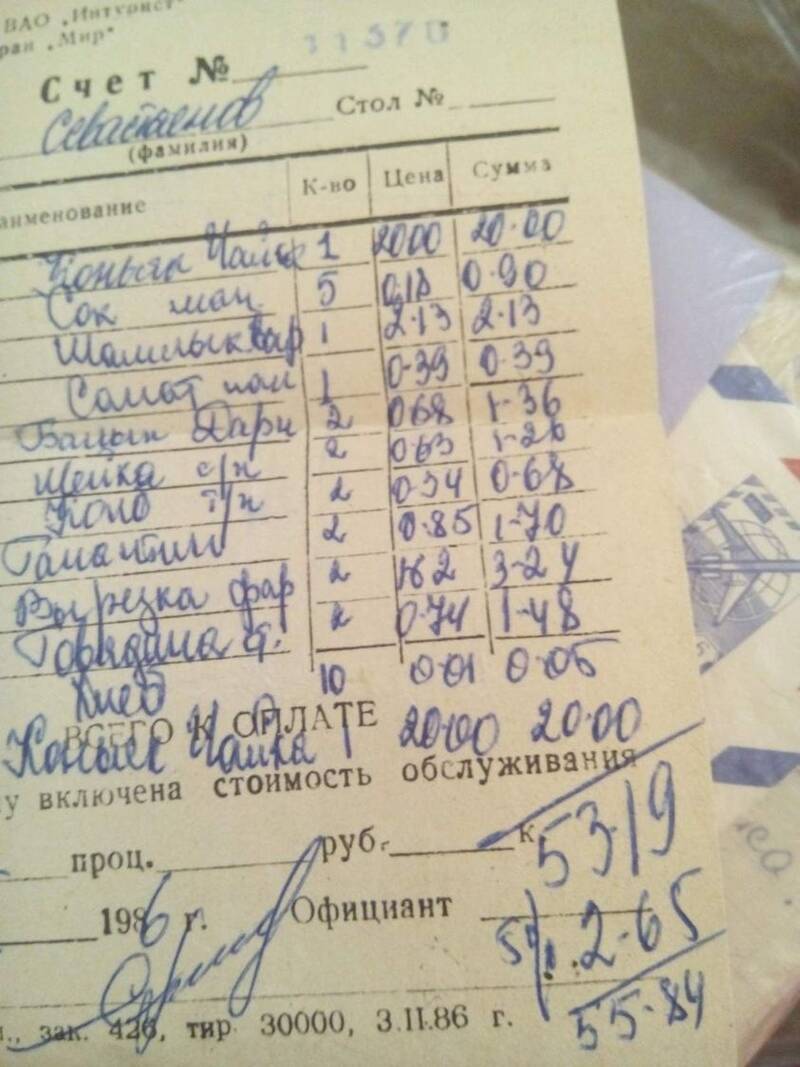 ВАО „Интурист"
ран „Мир"
11570
Счет №
Стол №
(фамилия)
аименование К-во Цена Сумма
Коньяк Чайка 1 2000 20-00
Сок ман. 5 0,18 0-90
Шашлык кар 1 2-13 2-13
Салат 1 0-39 0-39
2 0,68 1-36
Шейка с/к 2 0-63 1-26
Колб т/к 2 0-34 0-68
2 0-85 1-70
Вырезка фар 2 1-62 3-24
Говядина 2 0-74 1-48
Хлеб 10 0-01 0-05
ВСЕГО К ОПЛАТЕ
Коньяк Чайка 1 20-00 20-00
у включена стоимость обслуживания
проц. руб. к.
53-19
1986 г. Официант
5% 2-65
55-84
зак. 426, тир 30000, 3.II.86 г.